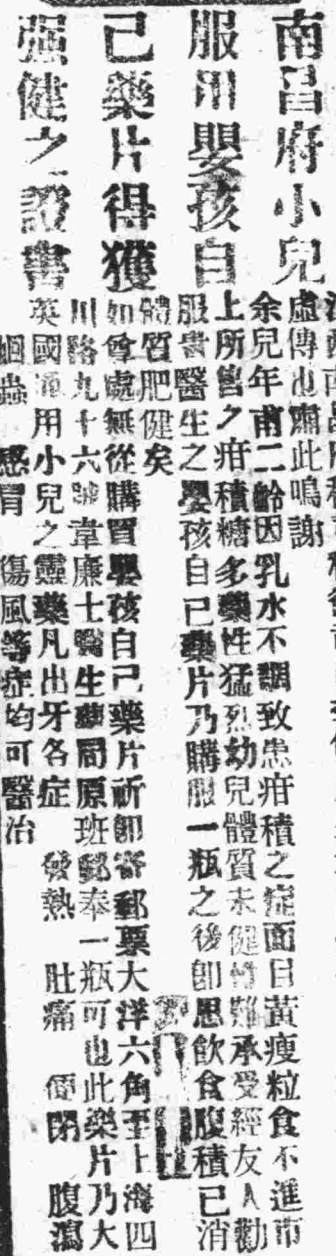 南昌府小兒
服用嬰孩自
己藥片得獲
强健之證書
虛傳也肅此鳴謝
余兒年甫二齡因乳水不調致患疳積之症面目黃瘦粒食不進市
上所售之疳積糖多藥性猛烈幼兒體質未健難承受經友人勸
服韋醫生之嬰孩自己藥片乃購服一瓶之後卽思飲食腹積已消
體質肥健矣
如尊處無從購買嬰孩自己藥片祈卽寄郵票大洋六角至上海四
川路九十六號韋廉士醫生藥局原班郵奉一瓶可也此藥片乃大
英國通用小兒之靈藥凡出牙各症 發熱 肚痛 便閉 腹瀉
蛔蟲 感冒 傷風等症均可醫治